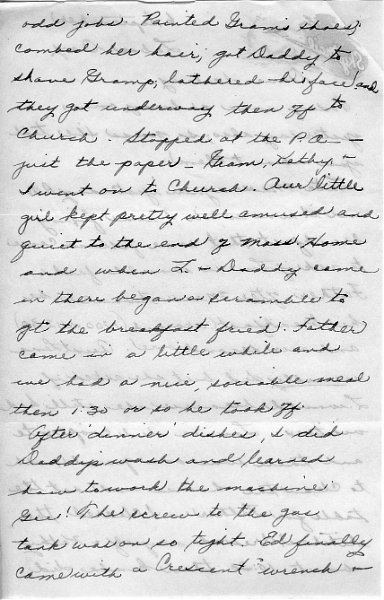 odd jobs Painted Gram's shoes,
combed her hair, got Daddy to
shave Gramp, lathered his face and
they got underway then off to
Church. Stopped at the P.O. -
just the paper - Gram, Kathy +
I went on to Church. Our little
girl kept pretty well amused and
quiet to the end of Mass. Home
and when L. + Daddy came
in there began a scramble to
get the breakfast fried. Father
came in a little while and
we had a nice, sociable meal
then 1:30 or so he took off
After 'dinner' dishes, I did
Daddy's wash and learned
how to work the machine
Gee! The screw to the gas
tank was on so tight. Ed finally
came with a "Crescent" wrench +